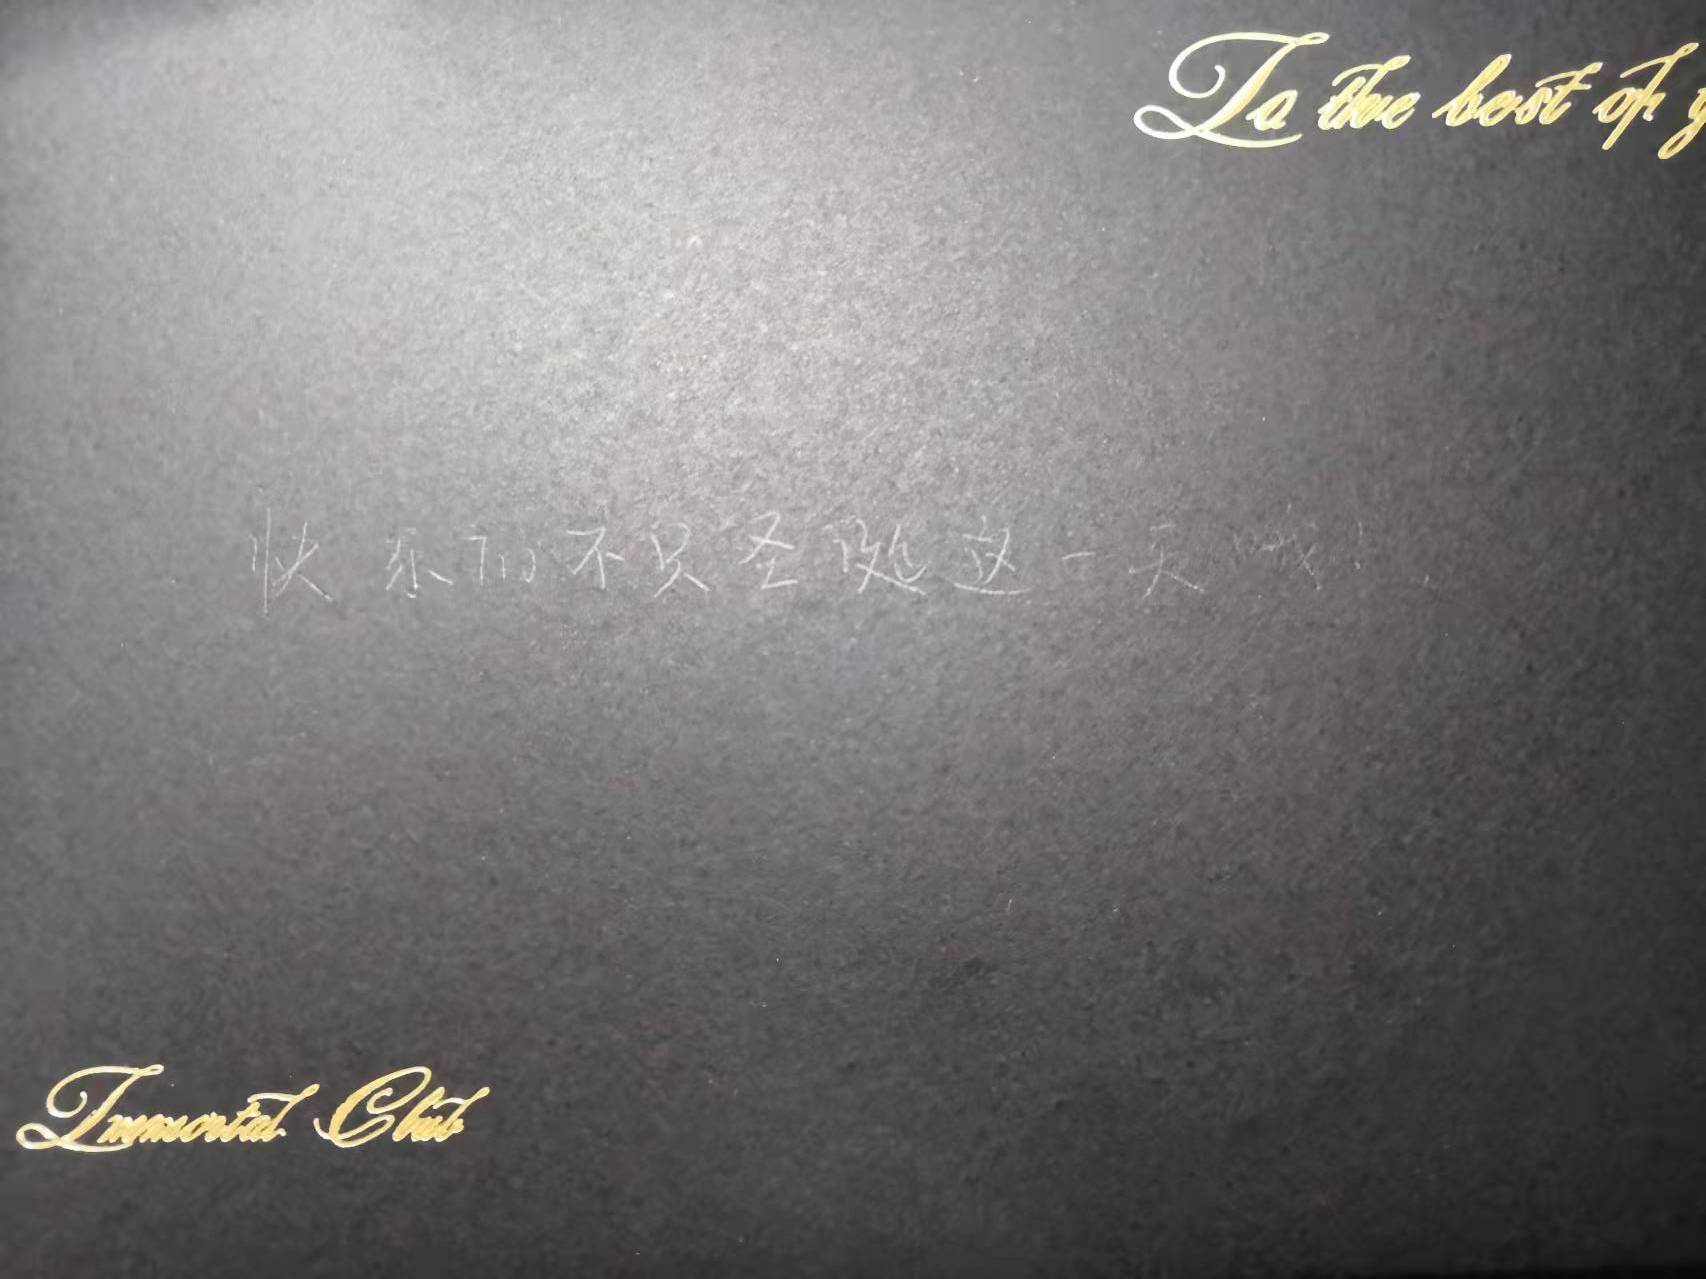 To the best of y
快乐的不只圣诞这一天哦!
Immortal Club